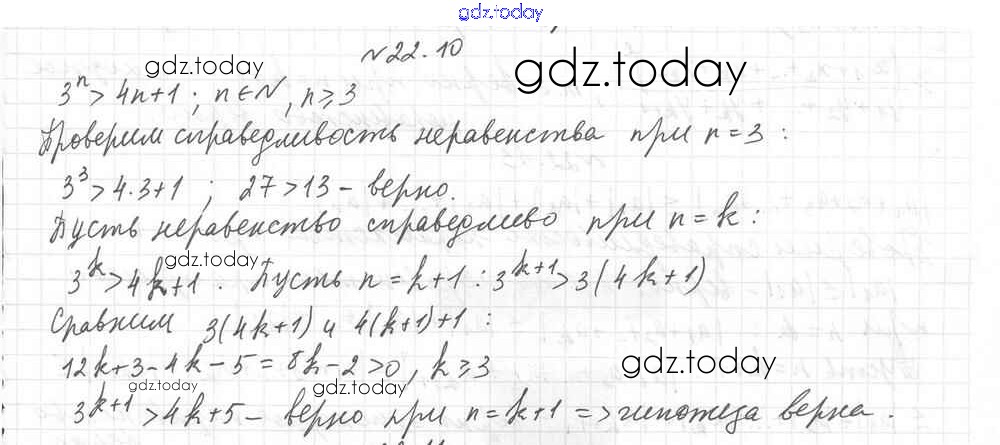 gdz.today
№22.10
gdz.today gdz.today
3^n > 4n+1 ; n∈N, n≥3
Проверим справедливость неравенства при n=3 :
3^3 > 4·3+1 ; 27 > 13 - верно.
Пусть неравенство справедливо при n=k :
3^k > 4k+1 . Пусть n=k+1 : 3^{k+1} > 3(4k+1)
gdz.today
Сравним 3(4k+1) и 4(k+1)+1 :
12k+3-4k-5 = 8k-2>0, k≥3
gdz.today gdz.today gdz.today
3^{k+1} > 4k+5 - верно при n=k+1 => гипотеза верна .